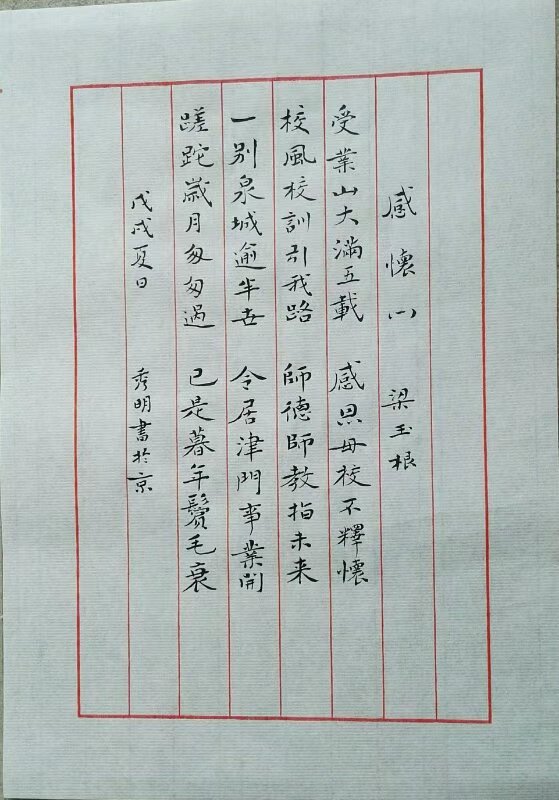 感懷(一) 梁玉根
受業山大滿五載 感恩母校不釋懷
校風校訓引我路 師德師教指未来
一别泉城逾半世 令居津門事業開
蹉跎歲月匆匆過 已是暮年鬢毛衰
戊戌夏日 秀明書於京